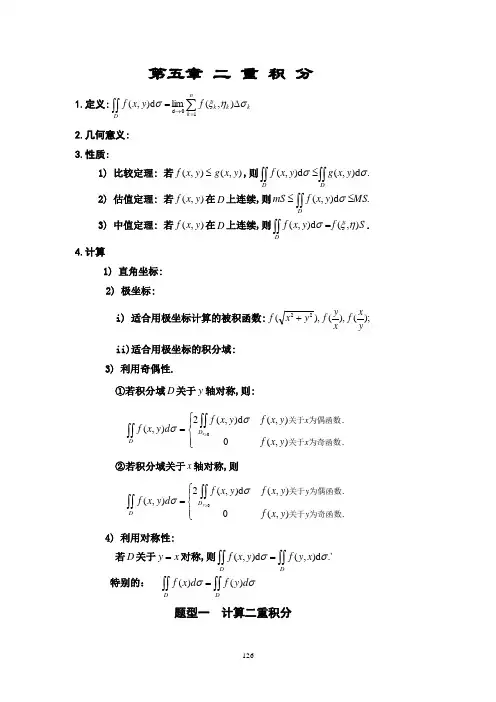 第五章 二 重 积 分
1.定义: $\iint\limits_D f(x,y)\mathrm{d}\sigma=\lim\limits_{d\to 0}\sum\limits_{k=1}^{n} f(\xi_k,\eta_k)\Delta\sigma_k$
2.几何意义:
3.性质:
1) 比较定理: 若 $f(x,y)\le g(x,y)$, 则 $\iint\limits_D f(x,y)\mathrm{d}\sigma\le\iint\limits_D g(x,y)\mathrm{d}\sigma.$
2) 估值定理: 若 $f(x,y)$ 在 $D$ 上连续,则 $mS\le\iint\limits_D f(x,y)\mathrm{d}\sigma\le MS.$
3) 中值定理: 若 $f(x,y)$ 在 $D$ 上连续,则 $\iint\limits_D f(x,y)\mathrm{d}\sigma=f(\xi,\eta)S$.
4.计算
1) 直角坐标:
2) 极坐标:
i) 适合用极坐标计算的被积函数: $f(\sqrt{x^2+y^2}),f(\frac{y}{x}),f(\frac{x}{y});$
ii)适合用极坐标的积分域:
3) 利用奇偶性.
①若积分域 $D$ 关于 $y$ 轴对称,则:
$\iint\limits_D f(x,y)d\sigma=\begin{cases}2\iint\limits_{D_{x\ge 0}} f(x,y)\mathrm{d}\sigma & f(x,y)关于x为偶函数.\\ 0 & f(x,y)关于x为奇函数.\end{cases}$
②若积分域关于 $x$ 轴对称,则
$\iint\limits_D f(x,y)d\sigma=\begin{cases}2\iint\limits_{D_{y\ge 0}} f(x,y)\mathrm{d}\sigma & f(x,y)关于y为偶函数.\\ 0 & f(x,y)关于y为奇函数.\end{cases}$
4) 利用对称性:
若 $D$ 关于 $y=x$ 对称,则 $\iint\limits_D f(x,y)\mathrm{d}\sigma=\iint\limits_D f(y,x)\mathrm{d}\sigma.$`
特别的: $\iint\limits_D f(x)d\sigma=\iint\limits_D f(y)d\sigma$
题型一 计算二重积分
126